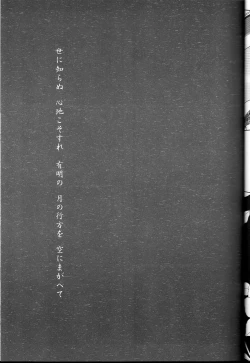 世に知らぬ　心地こそすれ　有明の　月の行方を　空にまがへて